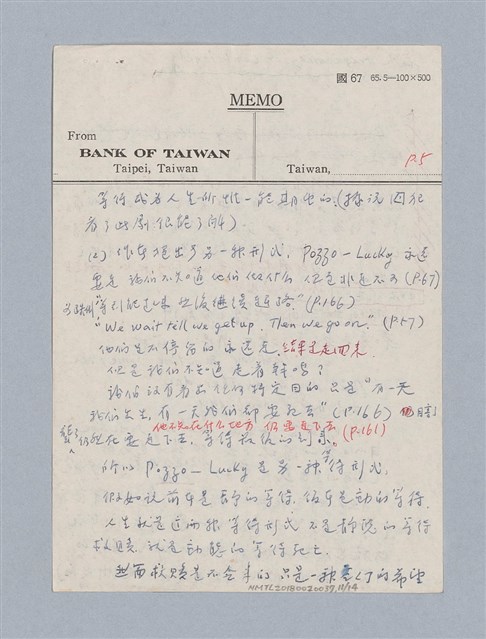 國 67 65.5—100×500
MEMO
From
BANK OF TAIWAN
Taipei, Taiwan
Taiwan,
P.5
等待成為人生所唯一能期望的。(據說囚犯
看了此劇很能了解)。
(2) 作者提出了另一種形式, Pozzo — Lucky 永遠
要走 我們不知道他們做什麼 但是非走不可 (P.67)
"等到能起來 然後繼續趕路。" (P.166)
"We wait till we get up. Then we go on." (P.57)
他們是不停留的永遠走。結果是走回來
但是我們不知道走著幹嗎?
我們沒有看出任何特定目的 只是"有一天
我們出生, 有一天我們都要死去" (P.166)
他不知在什么地方 仍要走下去 (P.161)
仍然在要走下去, 等待最後的到來。
所以 Pozzo — Lucky 是另一種等待形式,
假如說前者是靜的等待, 後者是動的等待,
人生就是這兩種等待形式 不是靜態的等待
救贖, 就是動態的等待死亡
然而救贖是不會來的 只是一種 的希望
NMTL20180020037, 11/14